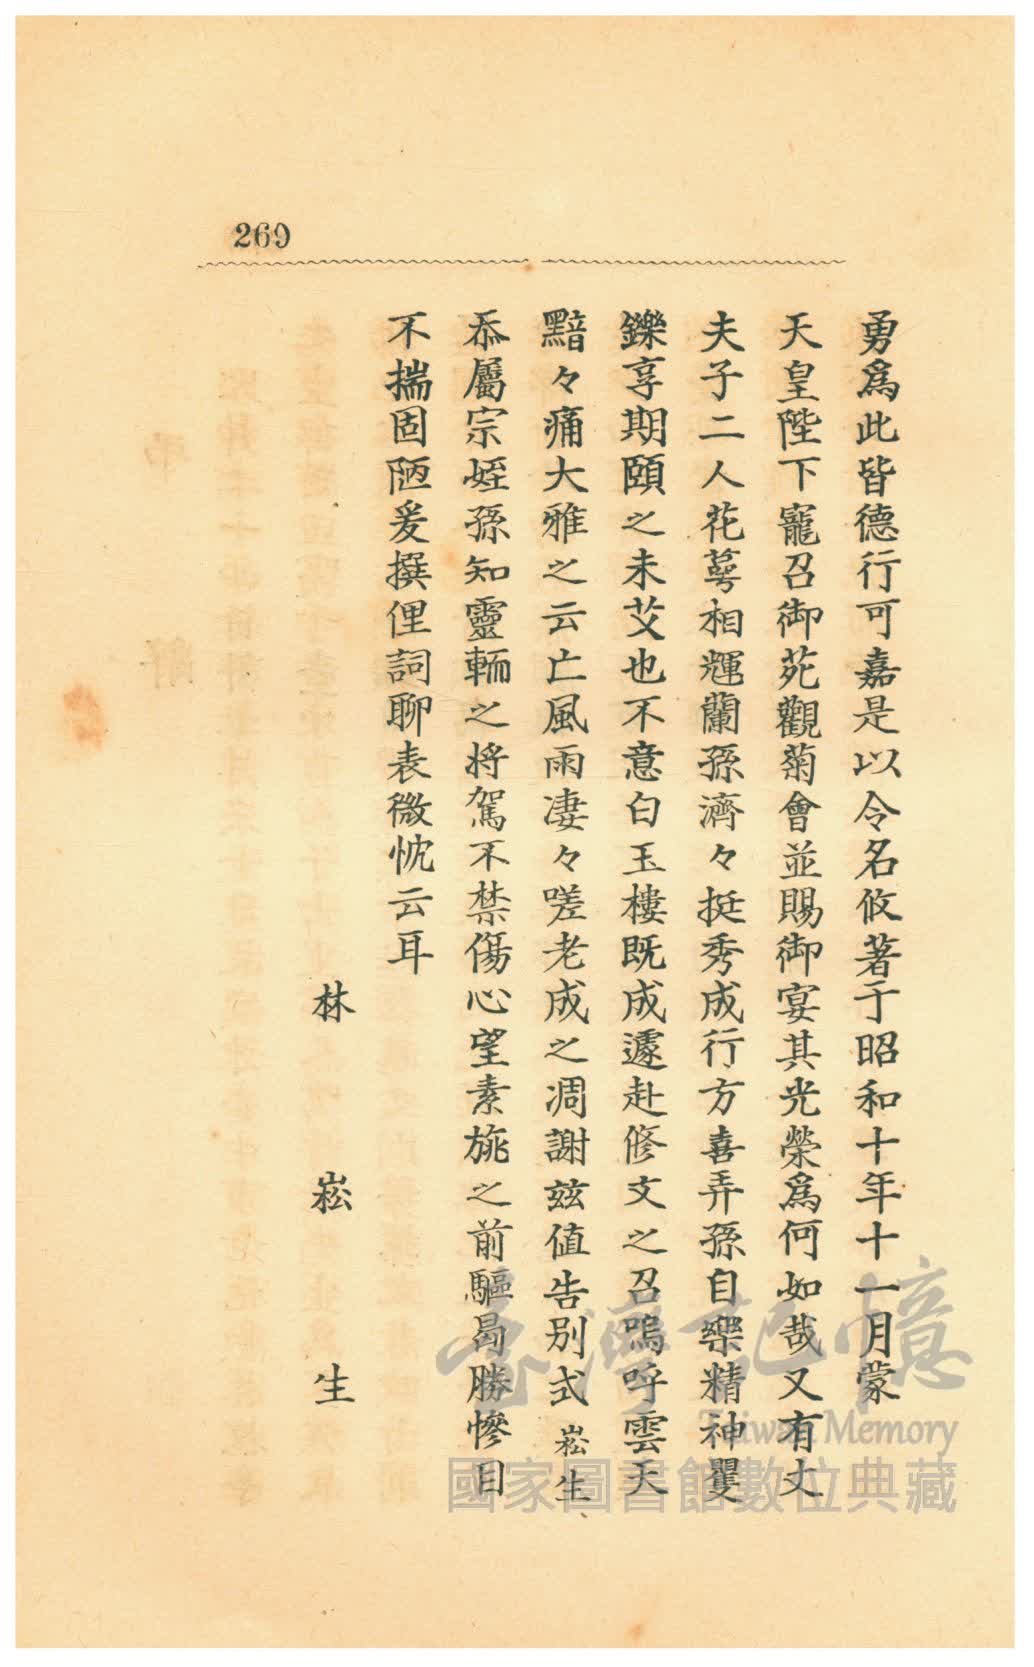 269
勇爲此皆德行可嘉是以令名攸著于昭和十年十一月蒙
天皇陛下寵召御苑觀菊會並賜御宴其光榮爲何如哉又有丈
夫子二人花萼相輝蘭孫濟々挺秀成行方喜弄孫自樂精神矍
鑠享期頤之未艾也不意白玉樓既成遽赴修文之召嗚呼雲天
黯々痛大雅之云亡風雨凄々嗟老成之凋謝玆值告別式崧生
忝屬宗姪孫知靈輀之將駕不禁傷心望素旐之前驅曷勝慘目
不揣固陋爰撰俚詞聊表微忱云耳
林崧生
臺灣記憶
Taiwan Memory
國家圖書館數位典藏